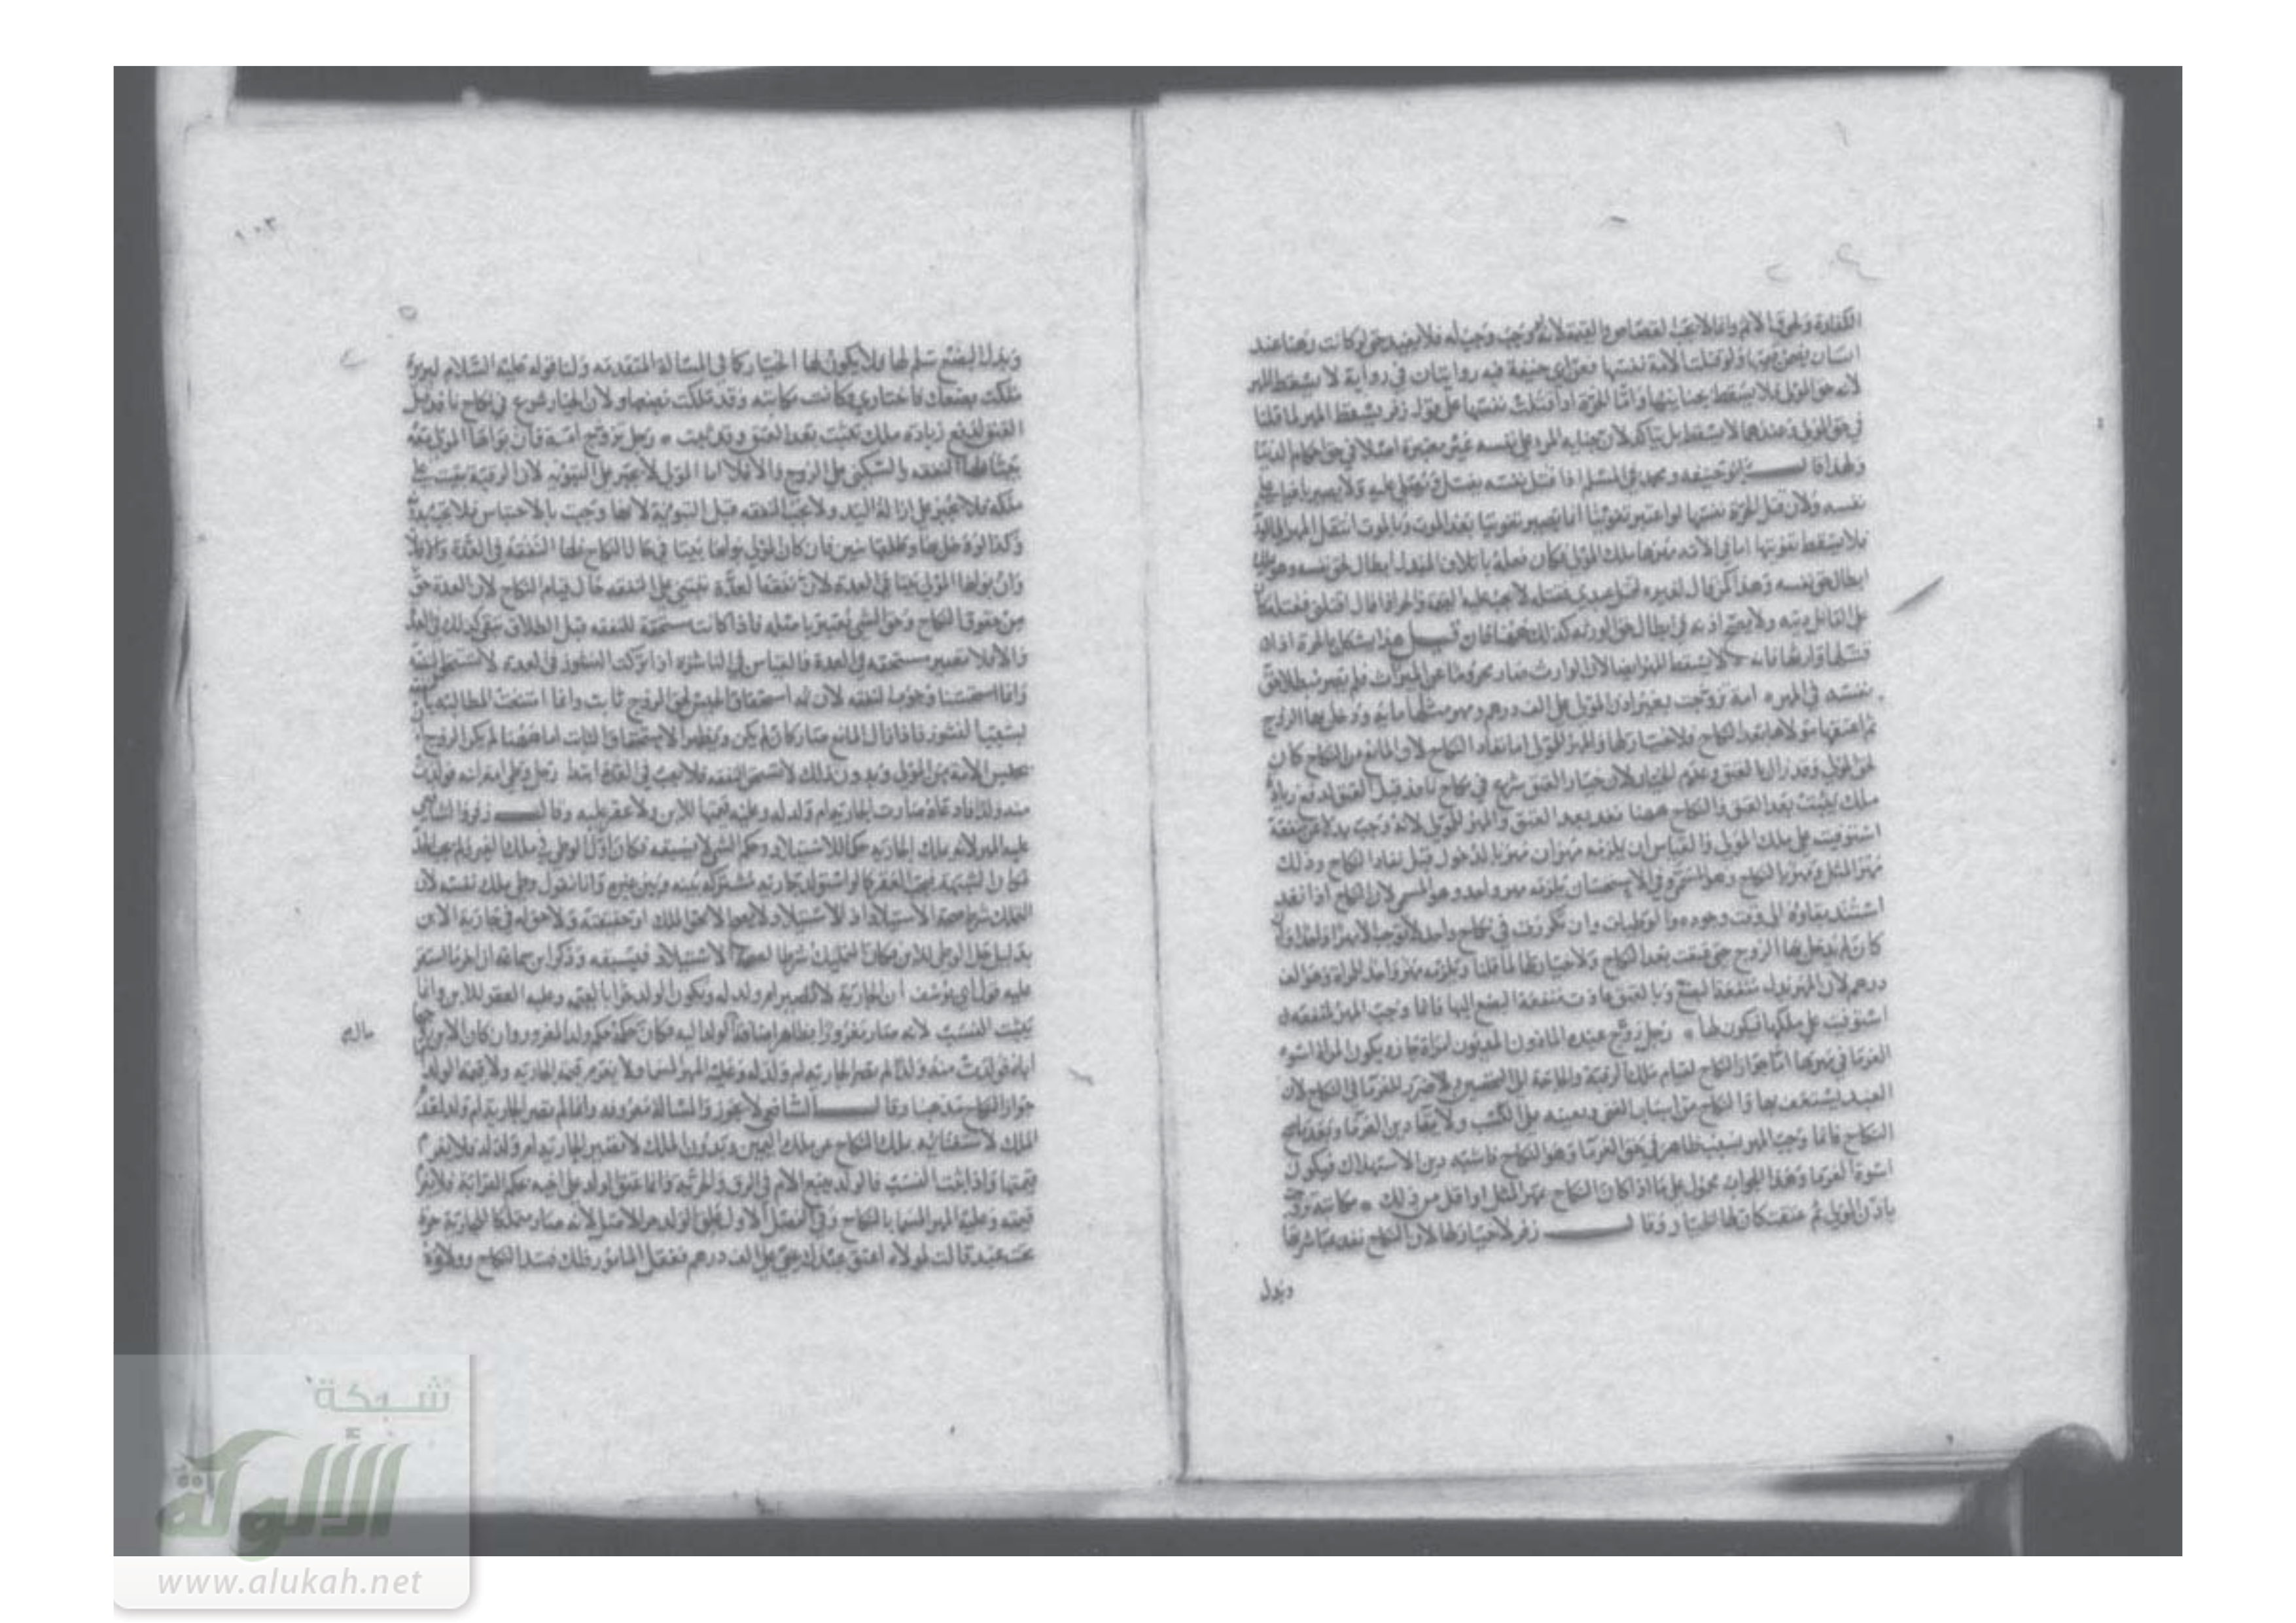 الكفارة ولحوق الاثم وانما لا يجب القصاص والقيمة لانه لو وجب وجب له فلا يفيد حتى لو كانت رهنا عند
انسان يضمن قيمتها ولو قتلت الامة نفسها فعن ابي حنيفة فيه روايتان في رواية لا يسقط المهر
لانه حق المولى فلا يسقط بجنايتها واما الحرة اذا قتلت نفسها على قول زفر يسقط المهر لما قلنا
في حق المولى وعندهما لا يسقط بل يتاكد لان جناية المرء على نفسه غير معتبرة اصلا في حق احكام الدنيا
ولهذا قال ابو حنيفة ومحمد في المسلم اذا قتل نفسه يغسل ويصلى عليه ولا يصير باغيا على
نفسه ولان قتل الحرة نفسها لو اعتبر تفويتا انما يصير تفويتا بعد الموت وبالموت انتقل المهر الى
فلا يسقط بتفويتها اما في الامة مهرها ملك المولى فكان فعله باتلاف المبدل ابطال لحق نفسه وهو
ابطال حق نفسه وهذا كمن قال لغيره اقتل عبدي فقتله لا يجب عليه القيمة والحر اذا قال اقتلني فقتله
على القاتل ديته ولا يعتبر اذنه في ابطال حق الورثة كذلك ههنا فان قيل هذا يشكل بالحرة اذا
قتلها وارثها فانه لا يسقط المهر ايضا لان الوارث صار محروما عن الميراث فلم يصر مبطلا حق
نفسه في المهر امة تزوجت بغير اذن المولى على الف درهم ومهر مثلها مايه ودخل بها الزوج
ثم اعتقها مولاها نفذ النكاح ولا خيار لها والمهر للمولى اما نفاذ النكاح لان المانع من النكاح كان
لحق المولى وقد زال بالعتق وعدم الخيار لان خيار العتق شرع في نكاح نافذ قبل العتق لدفع زيادة
ملك يثبت بعد العتق والنكاح ههنا نفذ بعد العتق والمهر للمولى لانه وجب بدلا عن منفعة
استوفيت على ملك المولى والقياس ان يلزمه مهران مهر بالدخول قبل نفاذ النكاح وذلك
مهر المثل ومهر بالنكاح وهو المسمى وفي الاستحسان يلزمه مهر واحد وهو المسمى لان النكاح اذا نفذ
استند نفاذه الى وقت وجوده والوطيات وان تكررت في نكاح واحد لا توجب الا مهرا واحدا
كان لم يدخل بها الزوج حتى عتقت نفذ النكاح ولا خيار لها لما قلنا ويلزمه مهر واحد للمراة وهو الف
درهم لان المهر بدل منفعة البضع وبالعتق عادت منفعة البضع اليها فانما وجب المهر لمنفعة
استوفيت على ملكها فيكون لها رجل زوج عبده الماذون المديون امراة جاز ويكون المراة اسوة
الغرما في مهرها اما جواز النكاح لقيام ملك الرقبة والحاجة الى التحصين ولا ضرر للغرما في النكاح لان
العبد يستعفف بها والنكاح من اسباب الغنى ويعينه على الكسب ولا يقا دين الغرما وبعد ما صح
النكاح فانما وجب المهر بسبب ظاهر في حق الغرما وهو النكاح فاشبه دين الاستهلاك فيكون
اسوة الغرما وهذا الجواب محمول على ما اذا كان النكاح بمهر المثل او اقل من ذلك مكاتبة تزوجت
باذن المولى ثم عتقت كان لها الخيار وقال زفر لا خيار لها لان النكاح نفذ
وبدل
١٠٣
وبدل البضع سلم لها فلا يكون لها الخيار كما في المسالة المتقدمة ولنا قوله عليه السلام لبريرة
ملكت بضعك فاختاري وكانت مكاتبة وقد ملكت بضعها ولان الخيار شرع في نكاح نافذ قبل
العتق لدفع زيادة ملك يثبت بعد العتق وقد ثبت رجل تزوج امة فان بواها المولى معه
بيتا فلها النفقة والسكنى على الزوج والا فلا اما المولى لا يجبر على التبوئة لان الرقبة بقيت على
ملكه فلا يجبر على ازالة اليد ولا تجب النفقة قبل التبوئة لانها وجبت بالاحتباس فلا تجب
وكذا لو طلقها وطلقها تبين فان كان المولى بواها بيتا في حال النكاح فلها النفقة في العدة والا فلا
وان بواها المولى بيتا في العدة لان نفقة العدة تبتنى على النفقة حال قيام النكاح لان العدة حق
من حقوق النكاح وحق الشي يعتبر باصله فاذا كانت مستحقة للنفقة قبل الطلاق تبقى كذلك في العدة
والا فلا تصير مستحقة في العدة فالقياس في الناشزة اذا تركت النشوز في العدة لا تستحق النفقة
وانما استحسنا وجوب النفقة لان له استحقاق الحبس لحق الزوج ثابت وانما امتنعت المطالبة
بسبب النشوز فاذا زال المانع صار كان لم يكن ويظهر الاستحقاق الثابت اما ههنا لم يكن الزوج
حبس الامة من المولى وبدون ذلك لا تستحق النفقة فلا تجب في العدة ابتدا رجل وطي امة ابنه فولدت
منه ولدا فادعاه صارت الجارية ام ولد له وعليه قيمتها للابن ولا عقر عليه وقال زفر والشافعي
عليه المهر لانه ملك الجارية حكما للاستيلاد وحكم الشي لا يسبقه فكان اول الوطي في ملك الغير
فكان الشبهة يجب العقر كما لو استولد جارية مشتركة بينه وبين غيره وانا نقول وطي ملك نفسه لان
التملك شرط صحة الاستيلاد اذ الاستيلاد لا يصح الا في الملك او حقيقته ولا حق له في جارية الابن
بدليل حل الوطي للابن فكان التمليك شرطا لصحة الاستيلاد فيسبقه وذكر ابن سماعة ان اخر ما استقر
عليه قول ابي يوسف ان الجارية لا تصير ام ولد له ويكون الولد حرا بالقيمة وعليه العقر للابن وانما
يثبت النسب لانه صار مغرورا بظاهر اضافة الولد اليه فكان حكمه حكم ولد المغرور وان كان الابن
اباه فولدت منه ولدا لم تصر الجارية ام ولد له وعليه المهر المسما ولا يغرم قيمة الجارية ولا قيمة الولد
جواز النكاح مذهبنا وقال الشافعي لا يجوز والمسالة معروفة وانما لم تصر الجارية ام ولد لفقد
الملك لاستغنائه ملك النكاح عن ملك اليمين وبدون الملك لا تصير الجارية ام ولد له فلا يغرم
قيمتها واذا ثبت النسب فالولد يتبع الام في الرق والحرية وانما عتق الولد على اخيه بحكم القرابة فلا يغرم
قيمته وعليه المهر المسما بالنكاح وفي الفصل الاول علق الولد حر الاصل لانه صار متملكا للجارية حرة
تحت عبد قالت لمولاه اعتق عبدك عني على الف درهم ففعل المامور ذلك فسد النكاح وولاؤه
شبكة
الألوكة
www.alukah.net